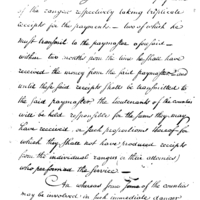 of the ranges respectively taking triplicate
receipts for the payments — two of which he
must transmit to the paymaster aforesaid —
within two months from the time he shall have
received the money from the said paymaster and
until these said receipts shall be transmitted to
the said paymaster the lieutenants of the counties
will be held responsible for the sums they may
have received or such proportions thereof for
which they shall not have produced receipts
from the individual rangers or their attornies
who performed the service —
As whereas some of the counties
may be involved in such immediate danger